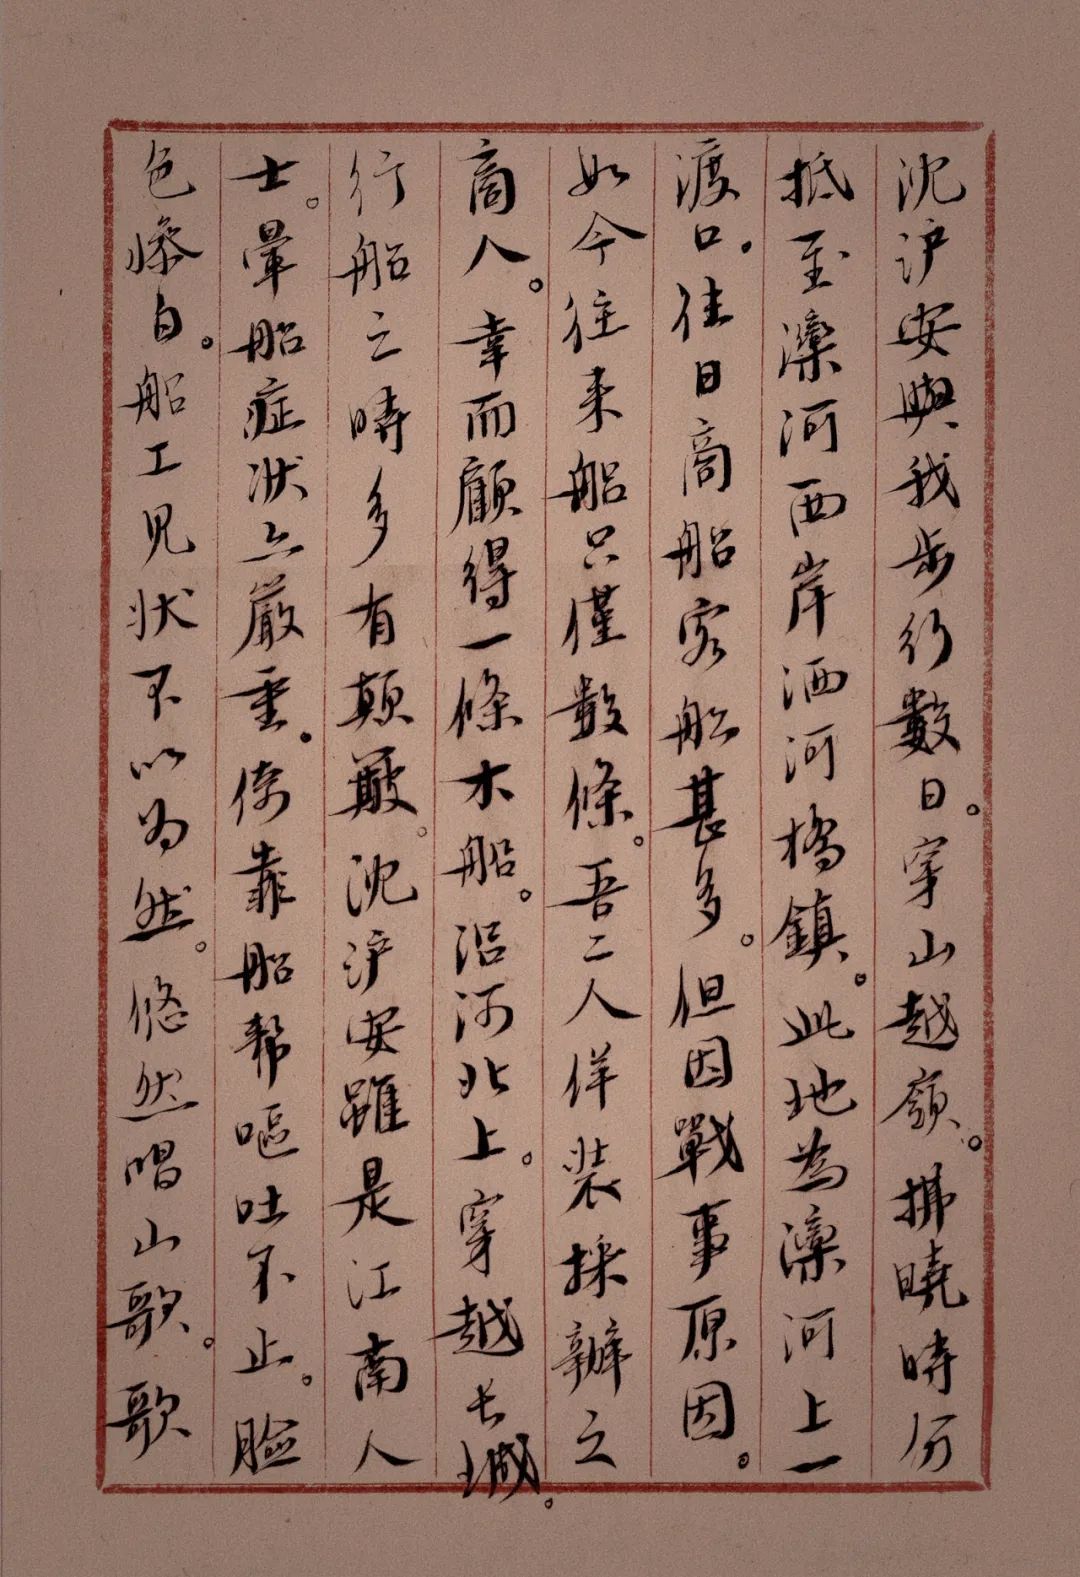 沈沪安與我步行數日。穿山越嶺。拂曉時分
抵至灤河西岸洒河橋鎮。此地為灤河上一
渡口。往日商船客船甚多。但因戰事原因。
如今往来船只僅數條。吾二人佯装採辦之
商人。幸而顧得一條木船。沿河北上。穿越长城。
行船之時多有顛簸。沈沪安雖是江南人
士。暈船症状亦嚴重。倚靠船帮嘔吐不止。臉
色惨白。船工见状不以为然。悠然唱山歌。歌